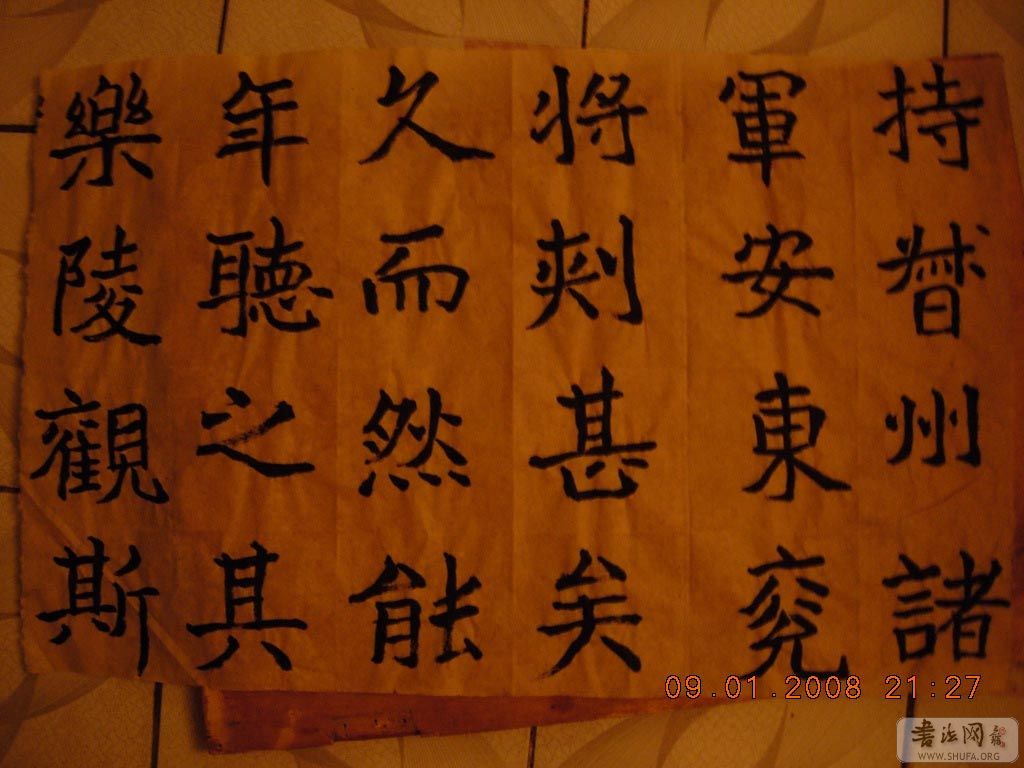 持督州諸
軍安東兗
将刾甚矣
久而然能
年聽之其
樂陵觀斯
09.01.2008 21:27
书法网
WWW.SHUFA.ORG